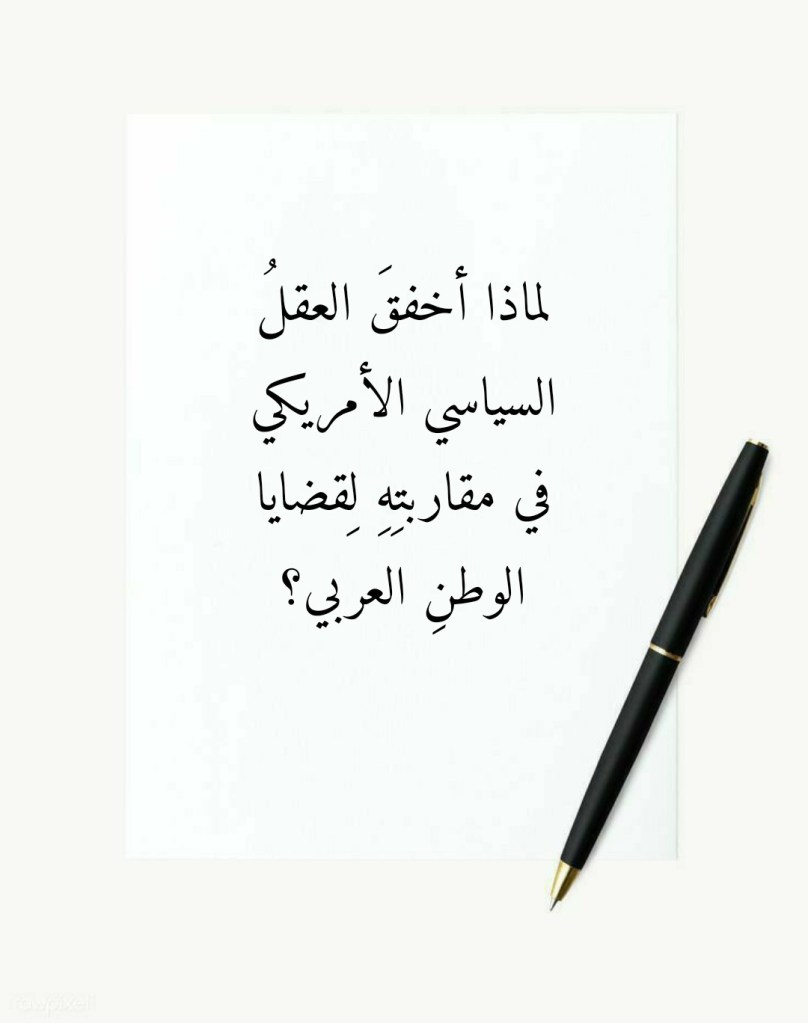 لماذا أخفقَ العقلُ
السياسي الأمريكي
في مقاربتِهِ لِقضايا
الوطنِ العربي؟
rawpixel